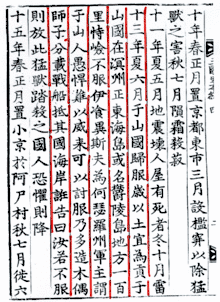 十年春正月置京都東市三月設檻穽以除猛
獸之害秋七月隕霜殺菽
十一年夏五月地震壞人屋有死者冬十月雷
十三年夏六月于山國歸服歲以土宜爲貢于
山國在溟州正東海島或名鬱陵島地方一百
里恃嶮不服伊飡異斯夫爲何瑟羅州軍主謂
于山人愚悍難以威來可以計服乃多造木偶
師子分載戰船抵其國海岸誑告曰汝若不服
則放此猛獸踏殺之國人恐懼則降
十五年春正月置小京於阿尸村秋七月徙六